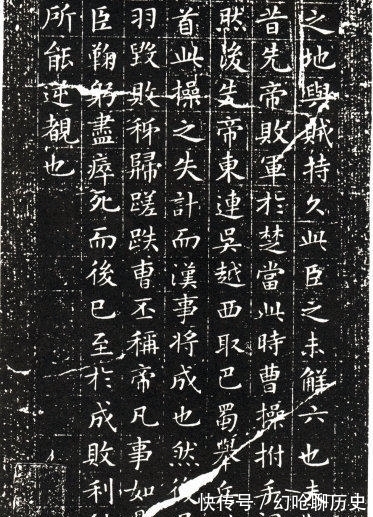 之地與賊持久此臣之未觧六也夫
昔先帝敗軍於楚當此時曹操拊手
然後先帝東連吳越西取巴蜀舉
首此操之失計而漢事将成也然後
羽毀敗秭歸蹉跌曹丕稱帝凡事如
臣鞠躬盡瘁死而後已至於成敗利
所能逆覩也
快传号·幻呛聊历史